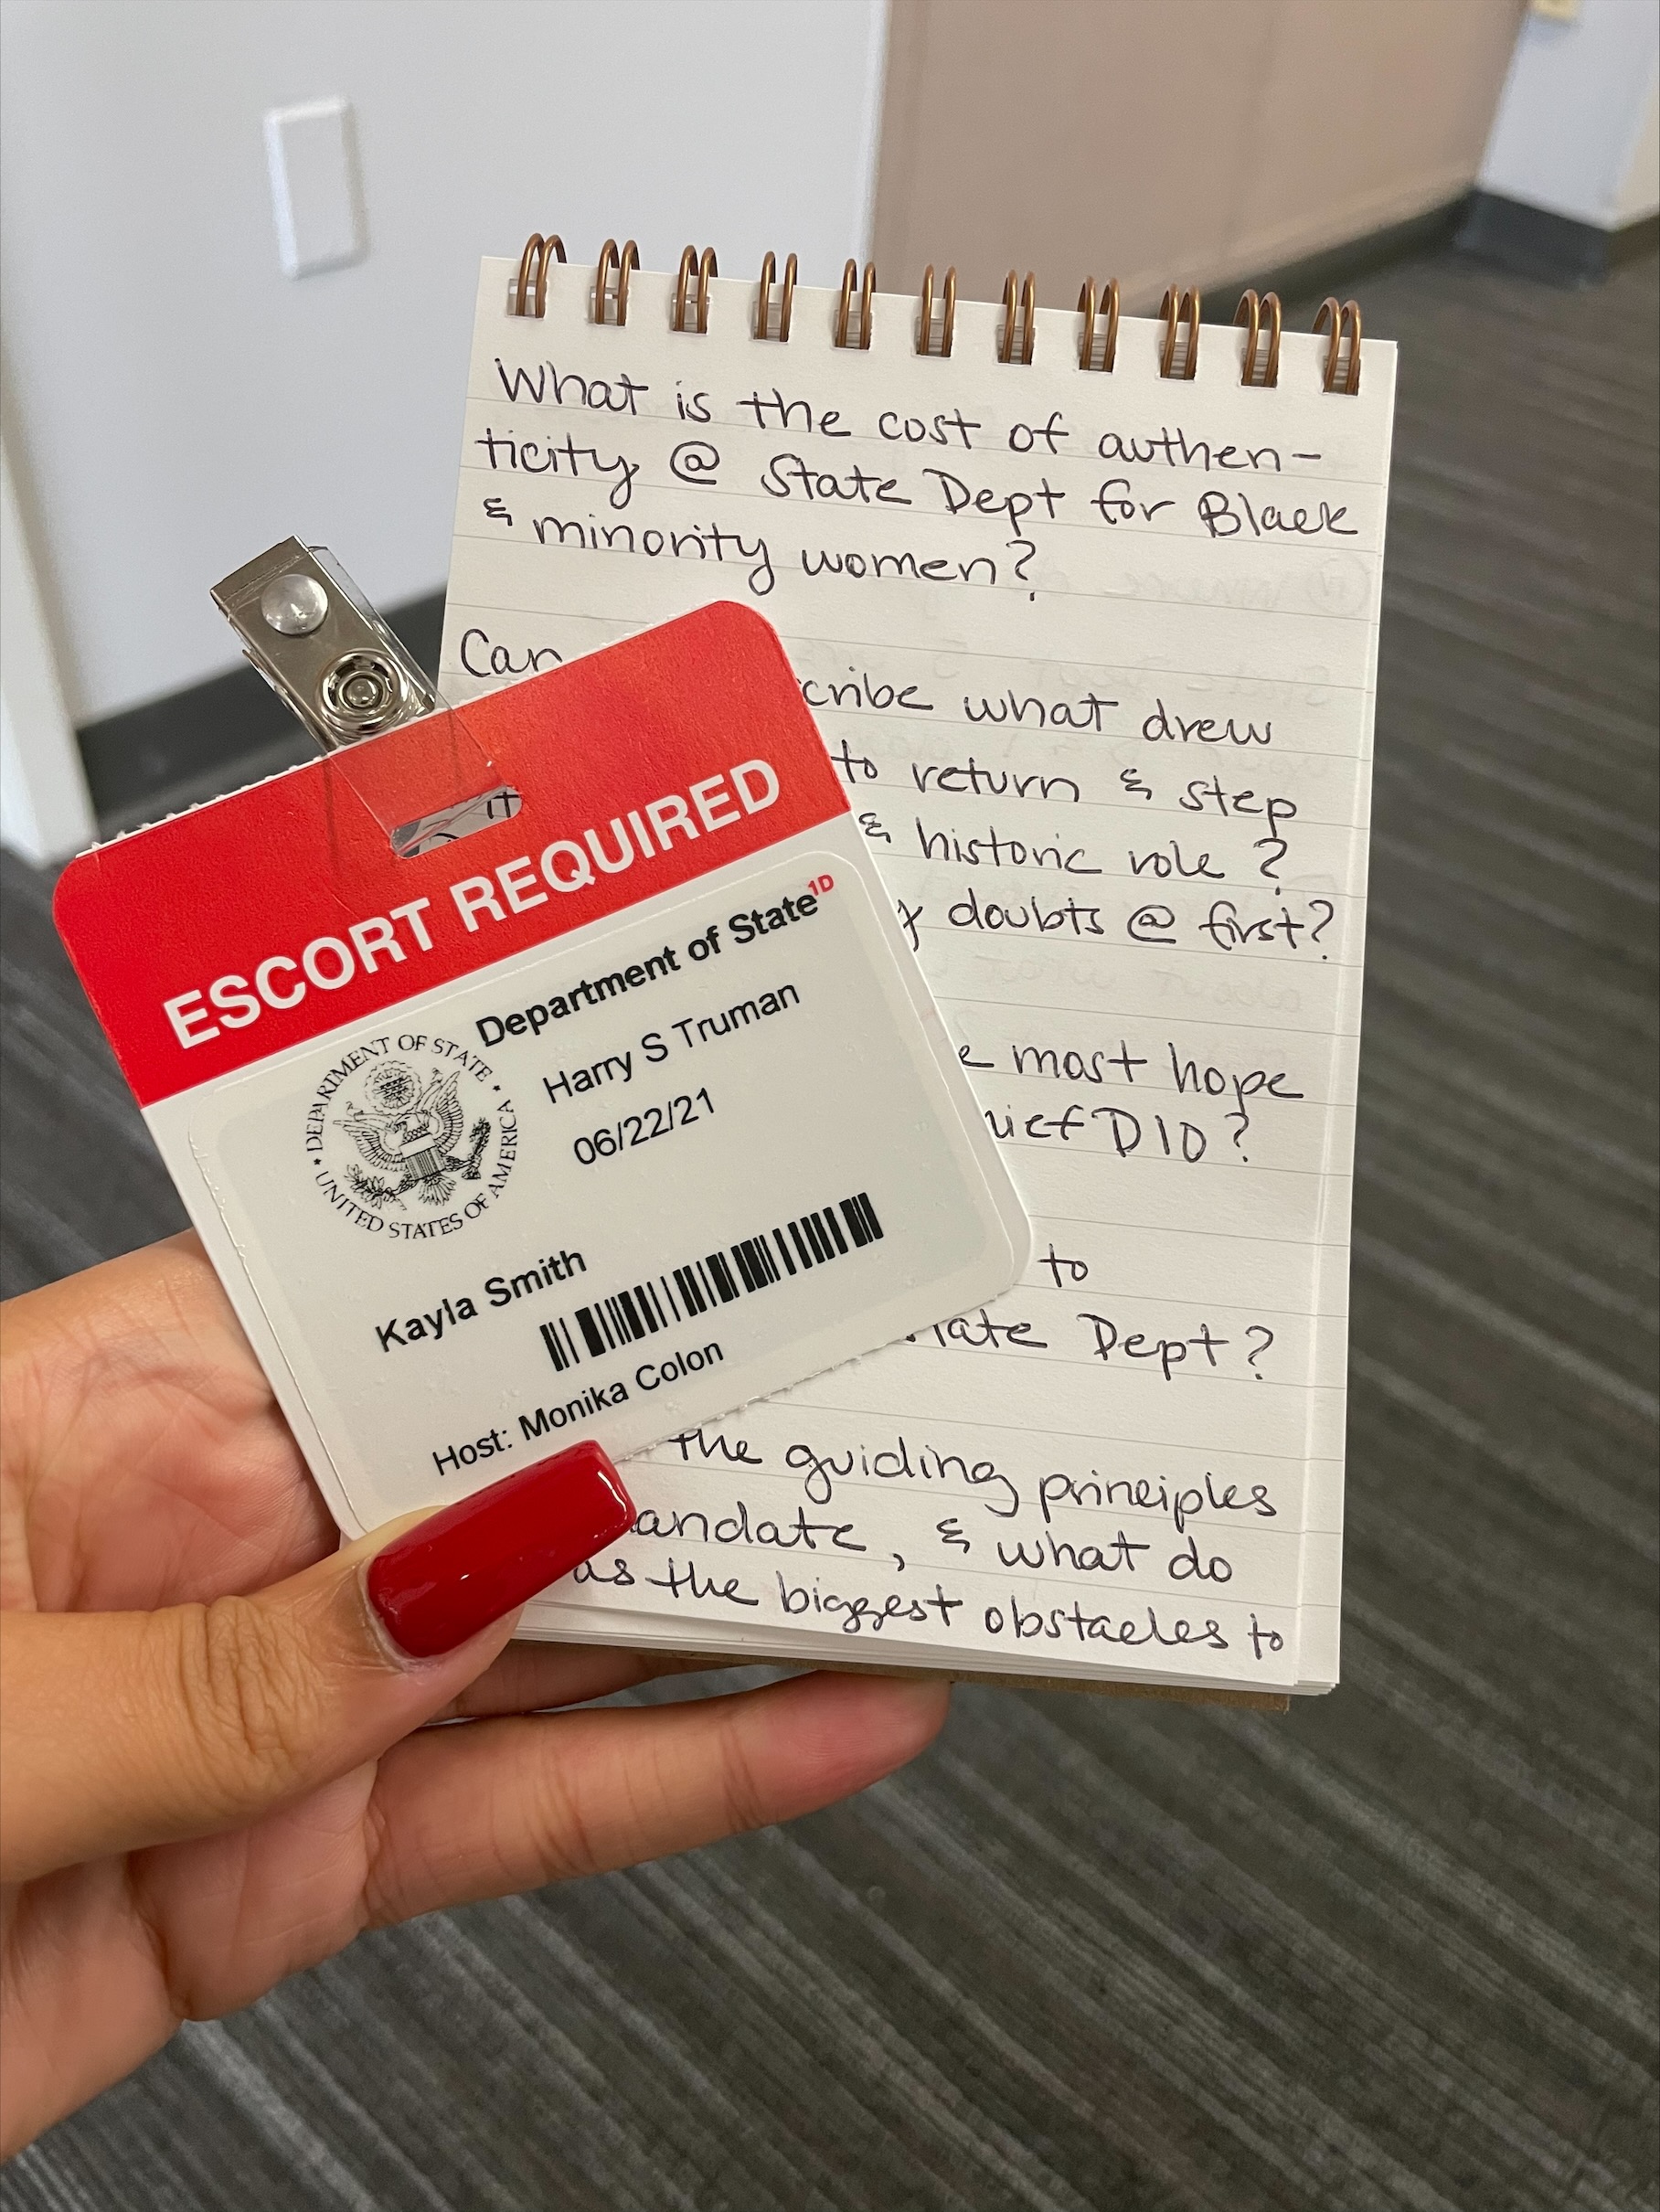 What is the cost of authen-
ticity @ State Dept for Black
& minority women?
Can
cribe what drew
to return & step
& historic role?
doubts @ first?
most hope
DIO?
to
Dept?
the guiding principles
andate, & what do
as the biggest obstacles to
IT
ESCORT REQUIRED
Department of State 1D
Harry S Truman
06/22/21
DEPARTMENT OF STATE
UNITED STATES OF AMERICA
Kayla Smith
Host: Monika Colon